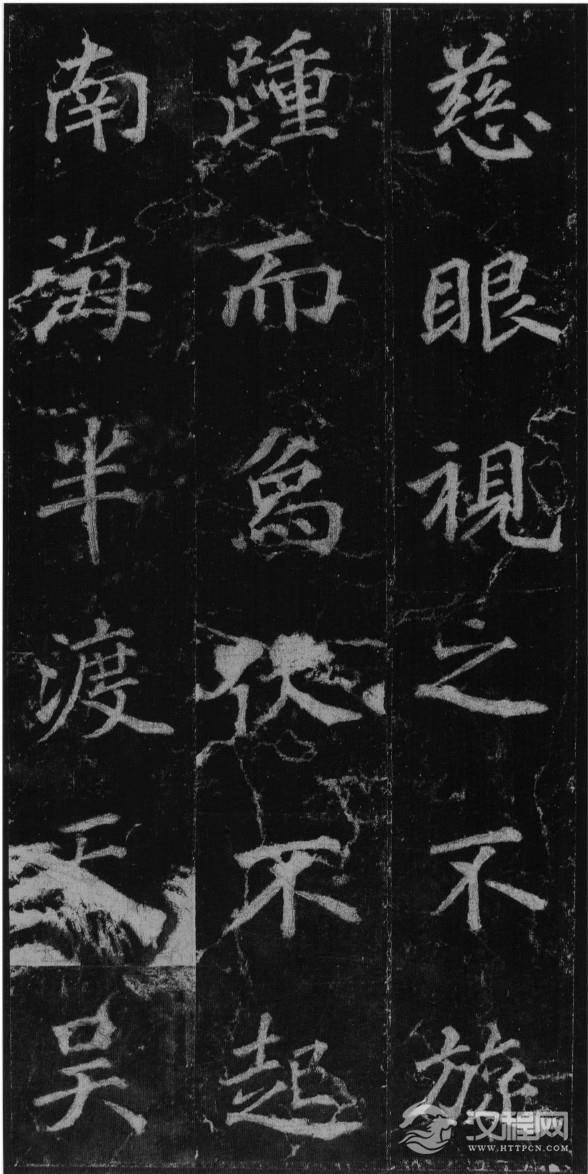 慈眼視之不旋
踵而伏不起
南海半渡吴
汉程网
WWW.HTTPCN.COM